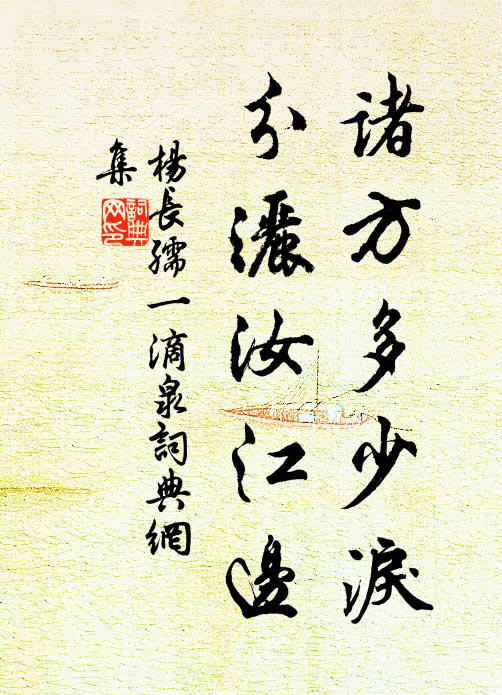 諸方多少淚
分灑汝江邊
楊長孺一滴泉詞典網
集
詞典
网印